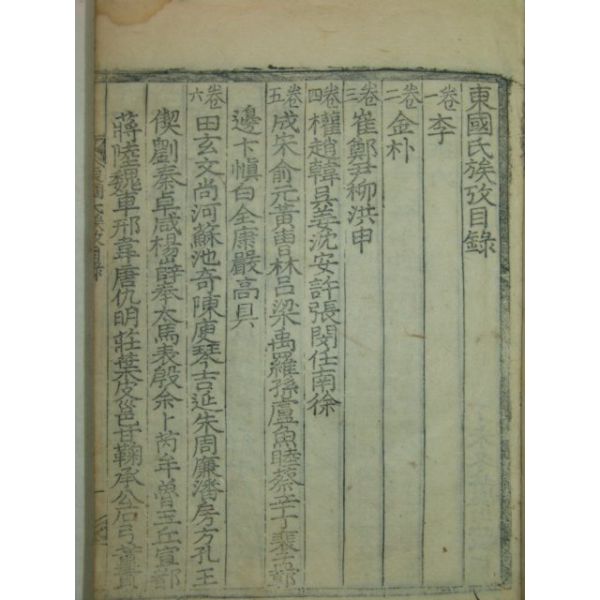 東國氏族攷目錄
卷一
李
卷二
金朴
卷三
崔鄭尹柳洪申
卷四
權趙韓吳姜沈安許張閔任南徐
卷五
成宋俞元黃曺林呂梁禹羅孫盧魚睦蔡辛丁裵孟郭
邊卞愼白全康嚴高具
卷六
田玄文尚河蘇池奇陳庾琴吉延朱周廉潘房方孔王
偰劉秦卓咸楊薛奉太馬表殷余卜芮牟魯玉丘宣都
蔣陸魏車邢韋唐仇明莊葉皮邕甘鞠承公石弓